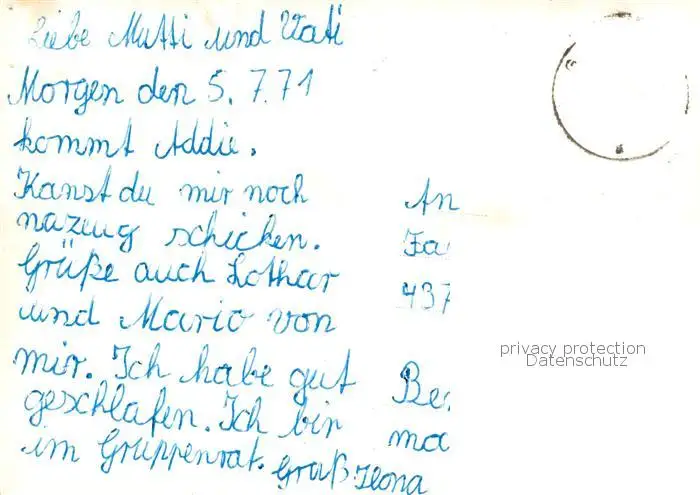 Liebe Mutti und Vati
Morgen den 5. 7. 71
kommt Addie.
Kanst du mir noch
nazeug schicken.
Grüße auch Lothar
und Mario von
mir. Ich habe gut
geschlafen. Ich bin
im Gruppenrat.
Gruß Ilona
An
Fa
437
Be
ma
privacy protection
Datenschutz